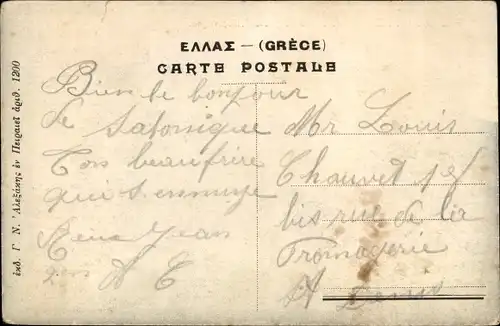 ΕΛΛΑΣ – (GRÈCE)
CARTE POSTALE
ἐκδ. Γ. Ν. Ἀλεξάκης ἐν Πειραιεῖ ἀριθ. 1200
Bien le bonjour
de Salonique
Ton beaufrère
qui s'ennuye
Jean
Mr Louis
Chauvet
bis rue de la
Fromagerie
St Denis